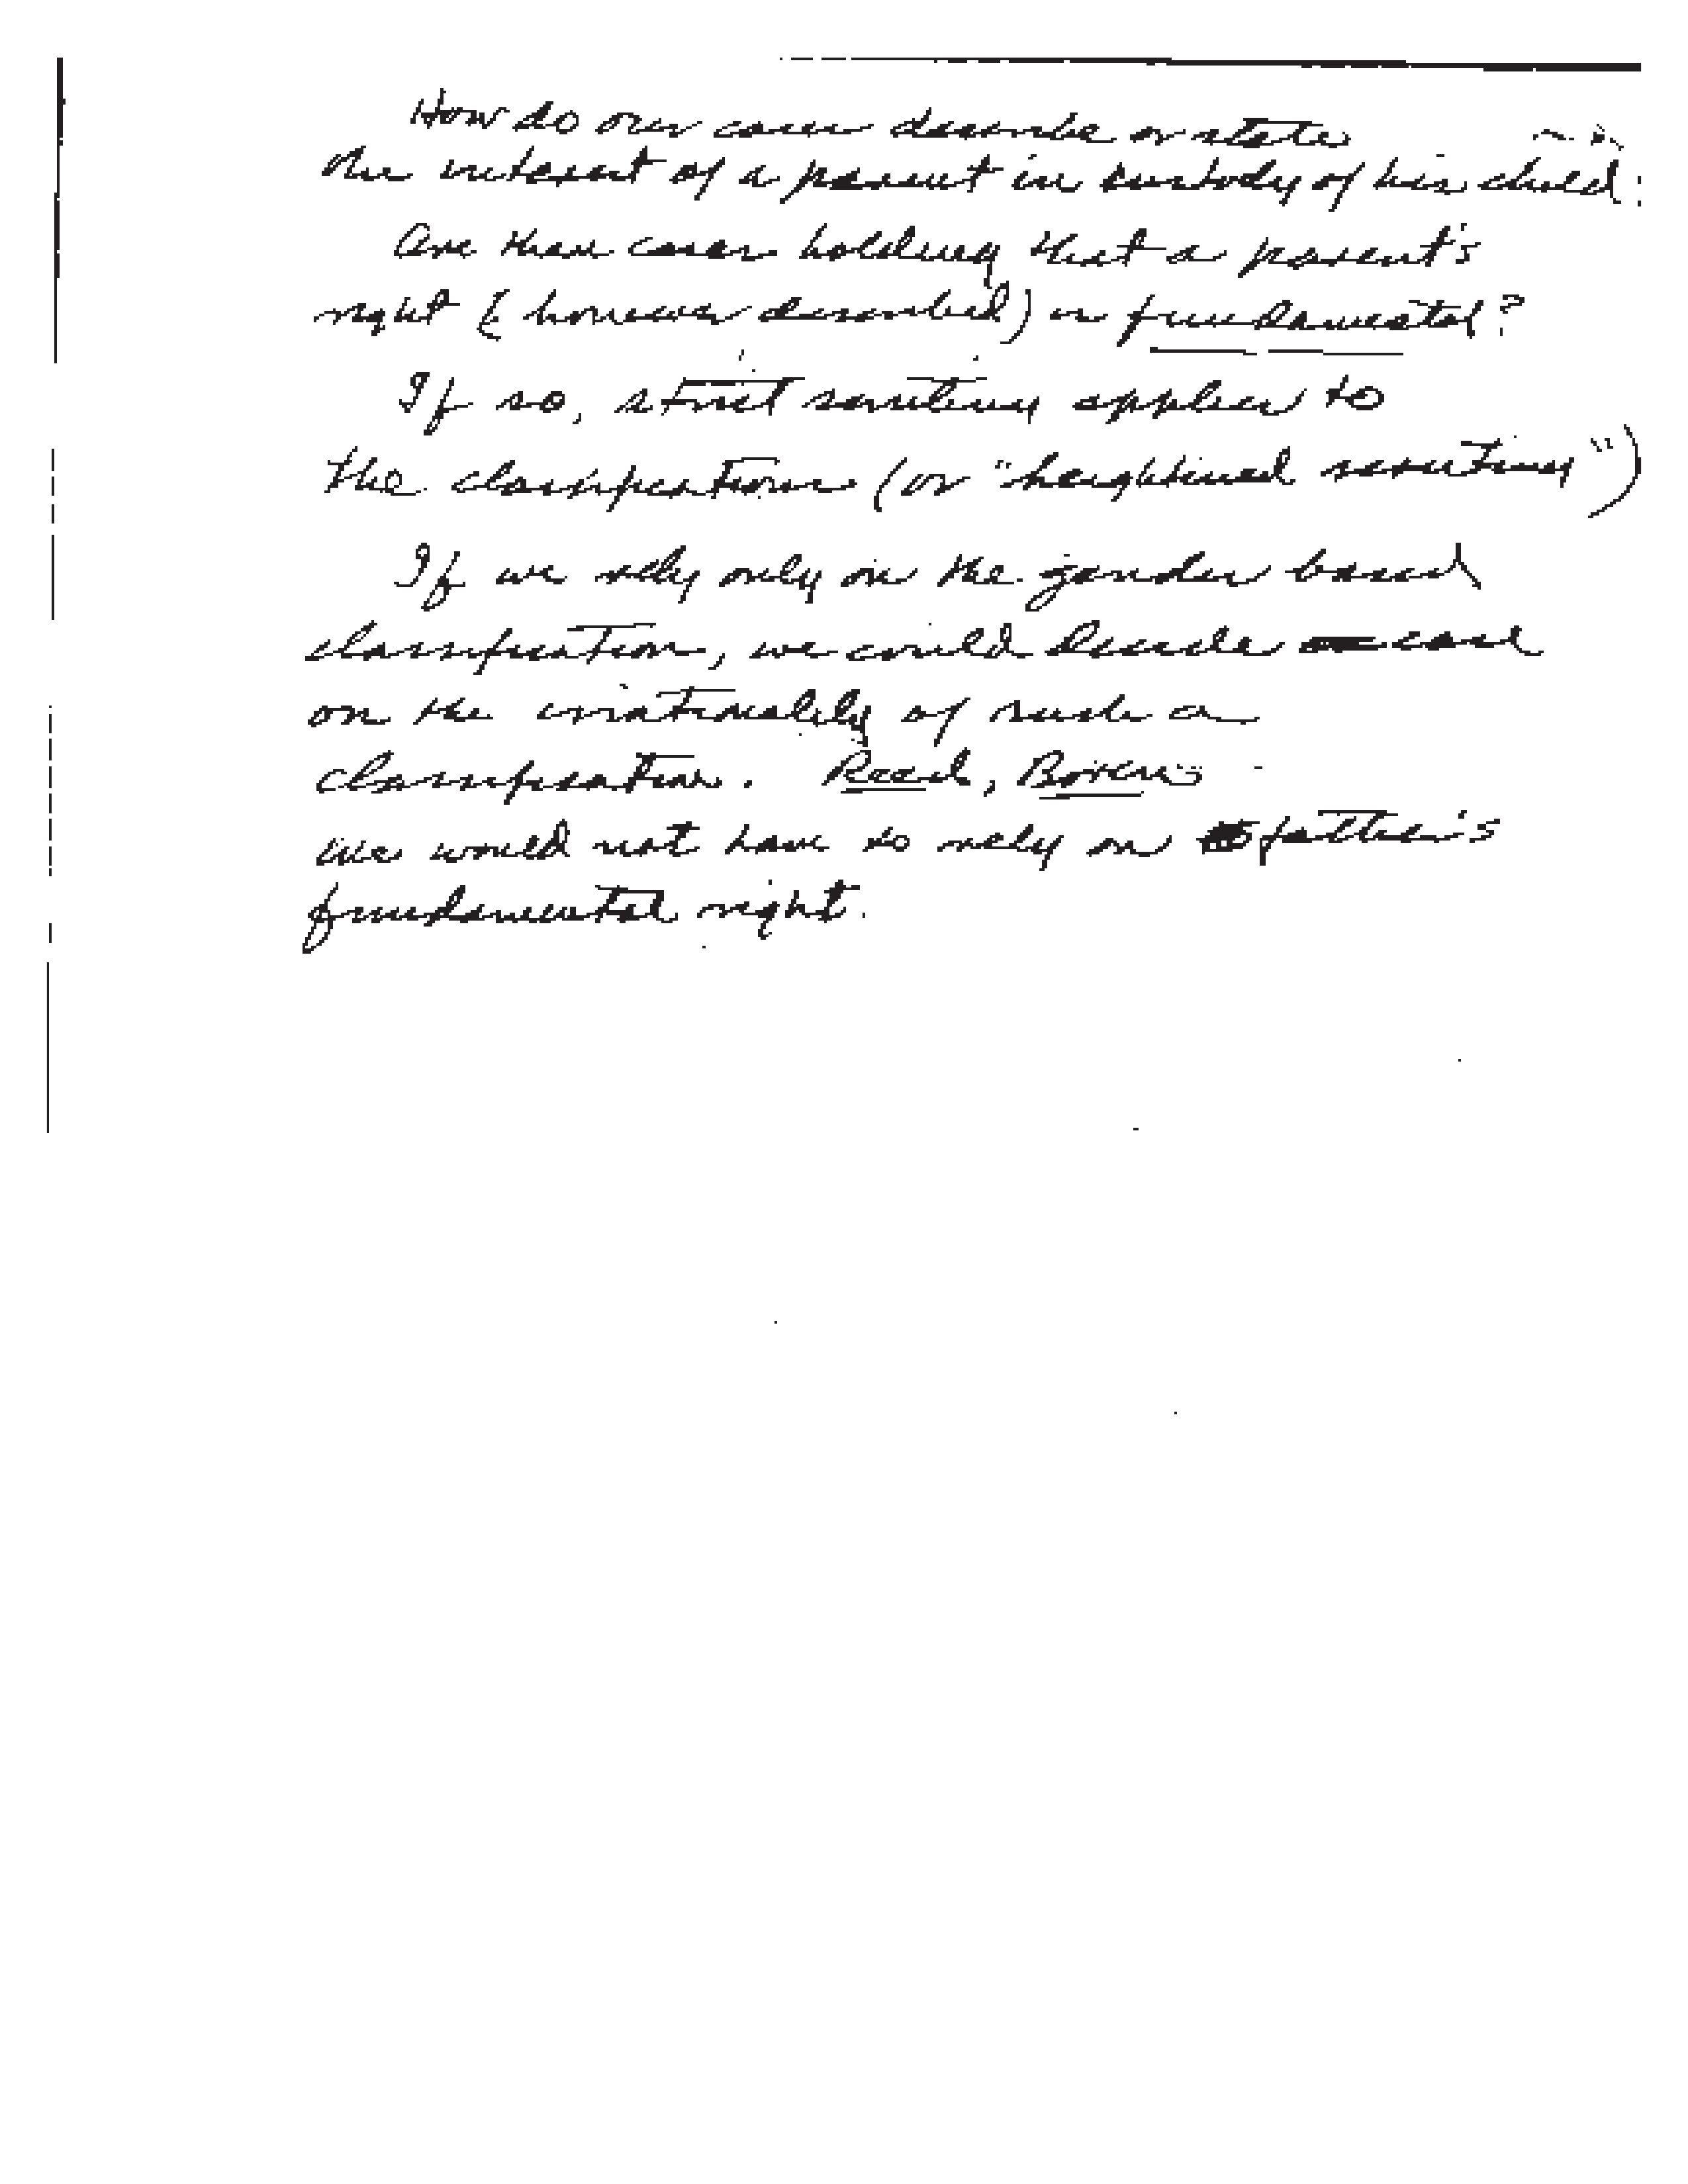 How do our cases describe or state
the interest of a parent in custody of his child?
Are there cases holding that a parent's
right (however described) is fundamental?
If so, strict scrutiny applies to
the classifications (or "heightened scrutiny")
If we rely only on the gender based
classification, we could decide case
on the irrationality of such a
classification. Reed, Boren -
We would not have to rely on father's
fundamental right.